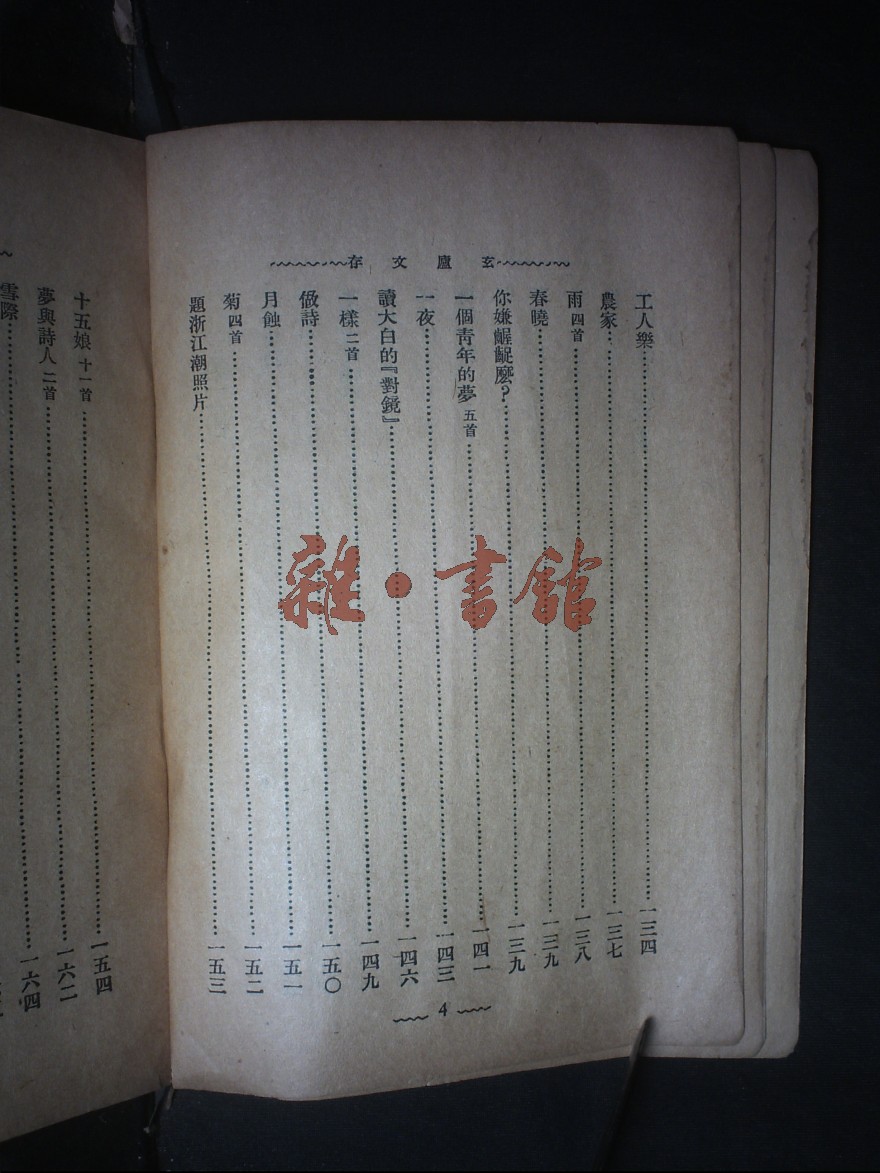 玄廬文存
工人樂 一三四
農家 一三七
雨 四首 一三八
春曉 一三九
你嫌齷齪麽？ 一三九
一個靑年的夢 五首 一四一
一夜 一四三
讀大白的『對鏡』 一四六
一樣 二首 一四九
做詩 一五〇
月蝕 一五一
菊 四首 一五二
題浙江潮照片 一五三
4
十五娘 十一首 一五四
夢與詩人 二首 一六二
雪際 一六四
雜·書館